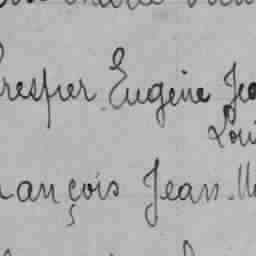 Crespier Eugène Jea
Loui
rançois Jean. M